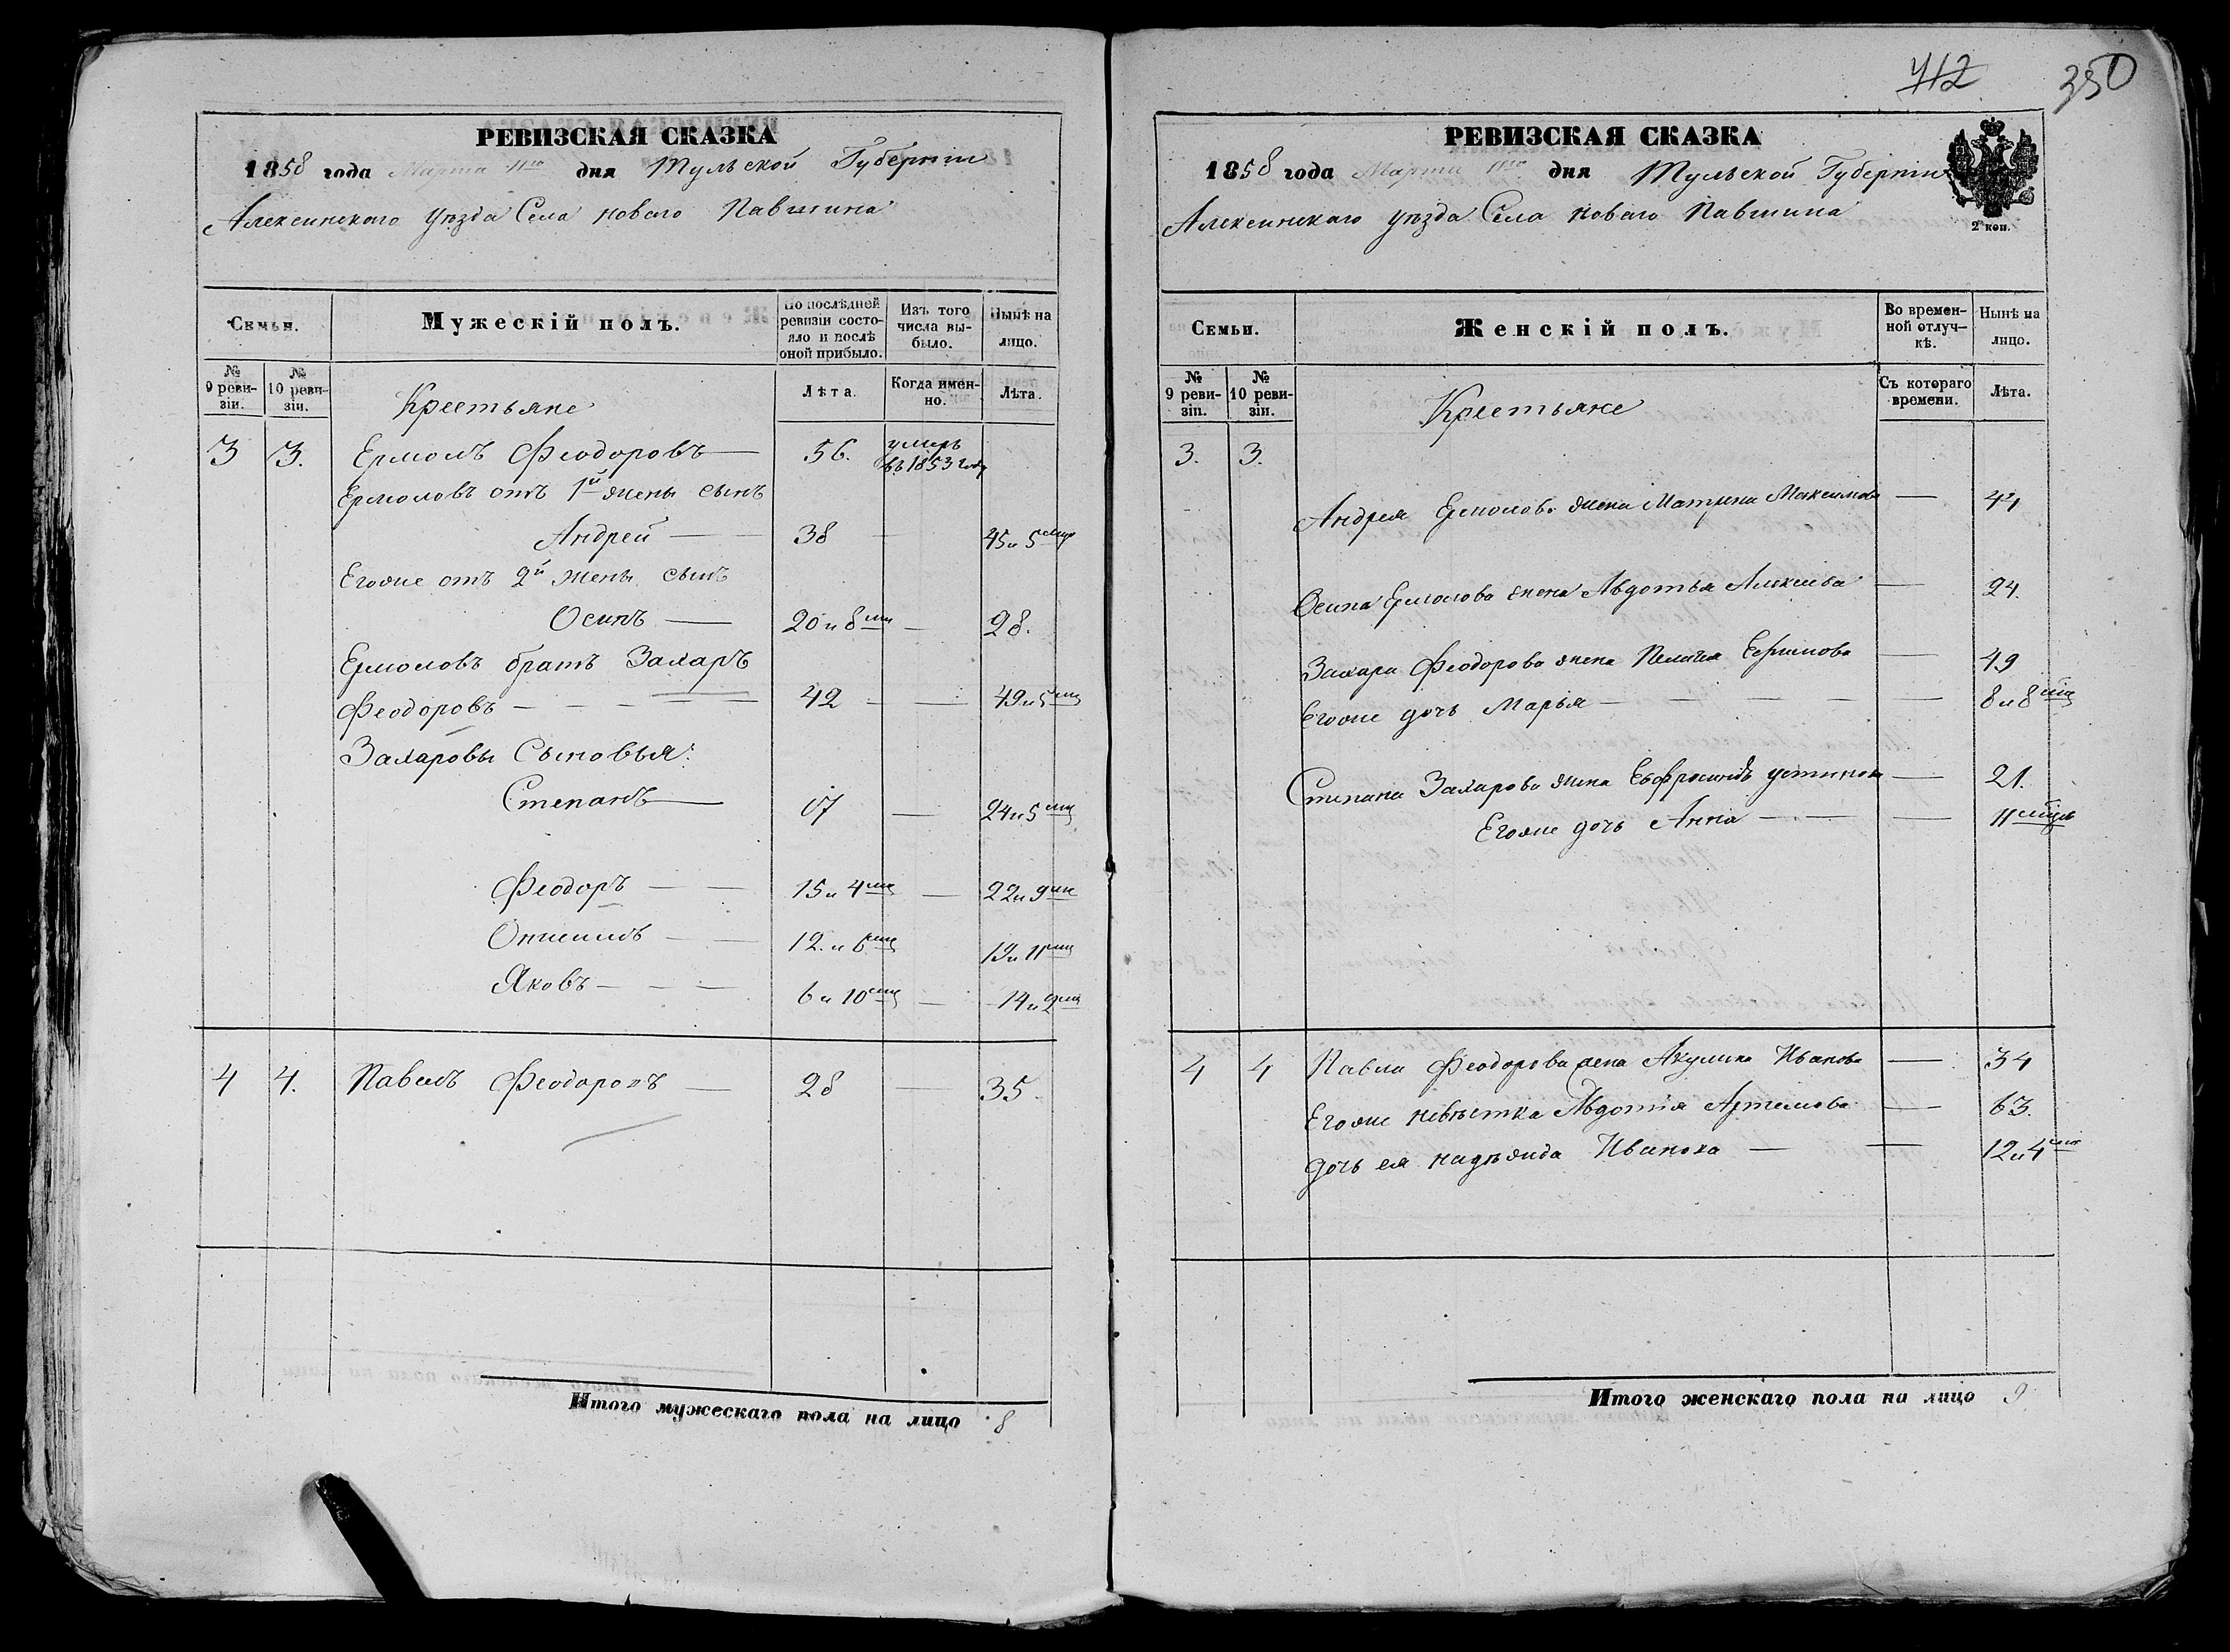 РЕВИЗСКАЯ СКАЗКА
1858 года Марта 11го дня Тульской Губерніи
Алексинскаго уѣзда Села Новаго Павшина
Семьи.
Мужескій полъ.
По послѣдней ревизіи состо-
яло и послѣ
оной прибыло.
Изъ того
числа вы-
было.
Нынѣ на
лицо.
№
9 реви-
зіи.
№
10 реви-
зіи.
Крестьяне
Лѣта.
Когда имен-
но.
Лѣта.
3 3. Ермолъ Феодоровъ — 56. умеръ
въ 1853 году
Ермоловъ отъ 1й жены сынъ
Андрей — 38 — 45 и 5 мцъ
Егоже отъ 2й жены сынъ
Осипъ — 20 и 8 мц — 28.
Ермоловъ братъ Захаръ
Феодоровъ — 42 — 49 и 5 мц
Захаровы Сыновья:
Степанъ — 17 — 24 и 5 мц
Феодоръ — 15 и 4 мц — 22 и 9 мц
Онисимъ — 12. и 6 мц 19 и 11 мц
Яковъ — 6 и 10 мц — 14 и 2 мц
4 4. Павелъ Феодоровъ — 28 — 35.
Итого мужескаго пола на лицо 8
712 350
РЕВИЗСКАЯ СКАЗКА
1858 года Марта 11го дня Тульской Губерніи
Алексинскаго уѣзда Села Новаго Павшина
2 коп.
Семьи.
Женскій полъ.
Во времен-
ной отлуч-
кѣ.
Нынѣ на
лицо.
№
9 реви-
зіи.
№
10 реви-
зіи.
Крестьяне
Съ котораго
времени.
Лѣта.
3. 3.
Андрея Ермолова жена Матрена Максимова — 44
Осипа Ермолова жена Авдотья Алексѣева — 24.
Захара Феодорова жена Пелагея Ефимова — 49
Егоже дочь Марья — 8 и 8 мц
Степана Захарова жена Евфросинья Устинова — 21.
Егоже дочь Анна — 11 мцъ
4 4 Павла Феодорова жена Акулина Иванова — 34
Егоже невѣстка Авдотья Артемова — 63.
дочь ея надежда Иванова — 12 и 4 мц
Итого женскаго пола на лицо 9